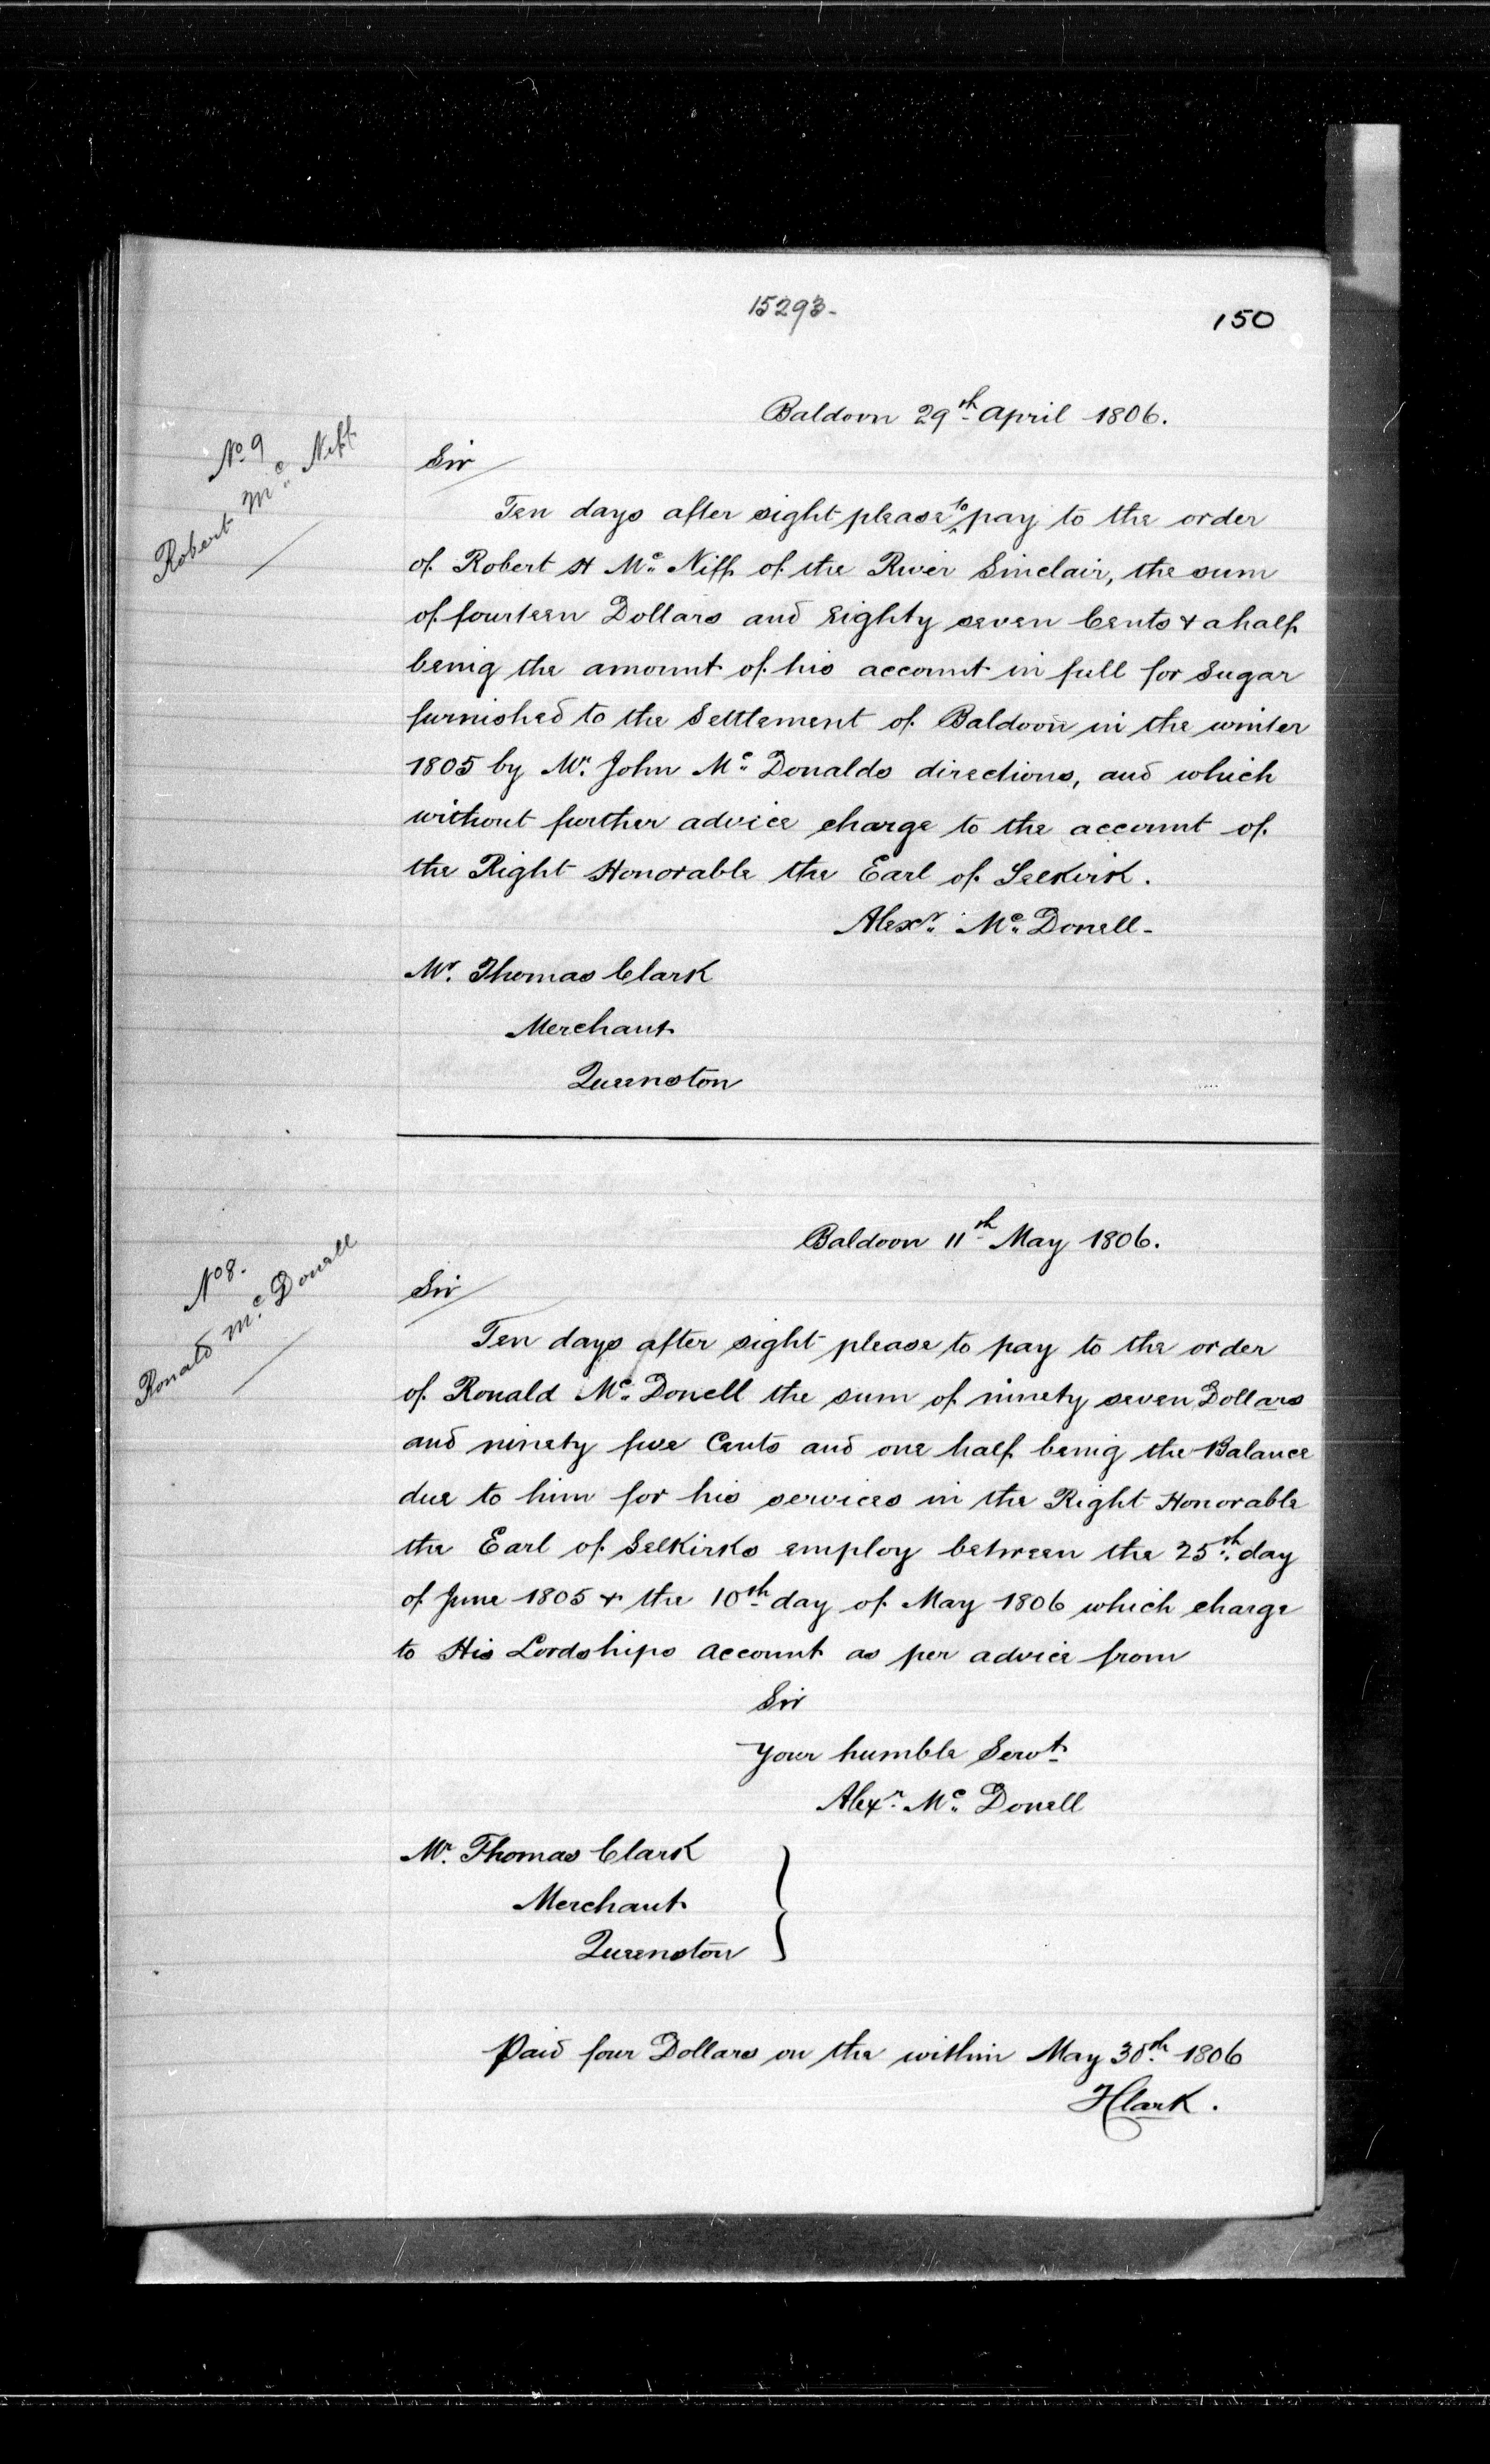 15293-
150
Baldoon 29th April 1806.
No 9
Robert Mc Niff
Sir
Ten days after sight please to pay to the order
of Robert H Mc Niff of the River Sinclair, the sum
of fourteen Dollars and Eighty seven Cents & a half
being the amount of his account in full for Sugar
furnished to the Settlement of Baldoon in the winter
1805 by Mr. John Mc Donalds directions, and which
without further advice charge to the account of
the Right Honorable the Earl of Selkirk.
Alexr. Mc Donell-
Mr. Thomas Clark
Merchant
Queenston
Baldoon 11th May 1806.
No 8.
Ronald Mc Donell
Sir
Ten days after sight please to pay to the order
of Ronald Mc Donell the sum of ninety seven Dollars
and ninety five Cents and one half being the Balance
due to him for his services in the Right Honorable
the Earl of Selkirks employ between the 25th day
of June 1805 & the 10th day of May 1806 which charge
to His Lordships account as per advice from
Sir
Your humble Servt
Alexr. Mc Donell
Mr. Thomas Clark
Merchant
Queenston
Paid four Dollars on the within May 30th 1806
TClark.